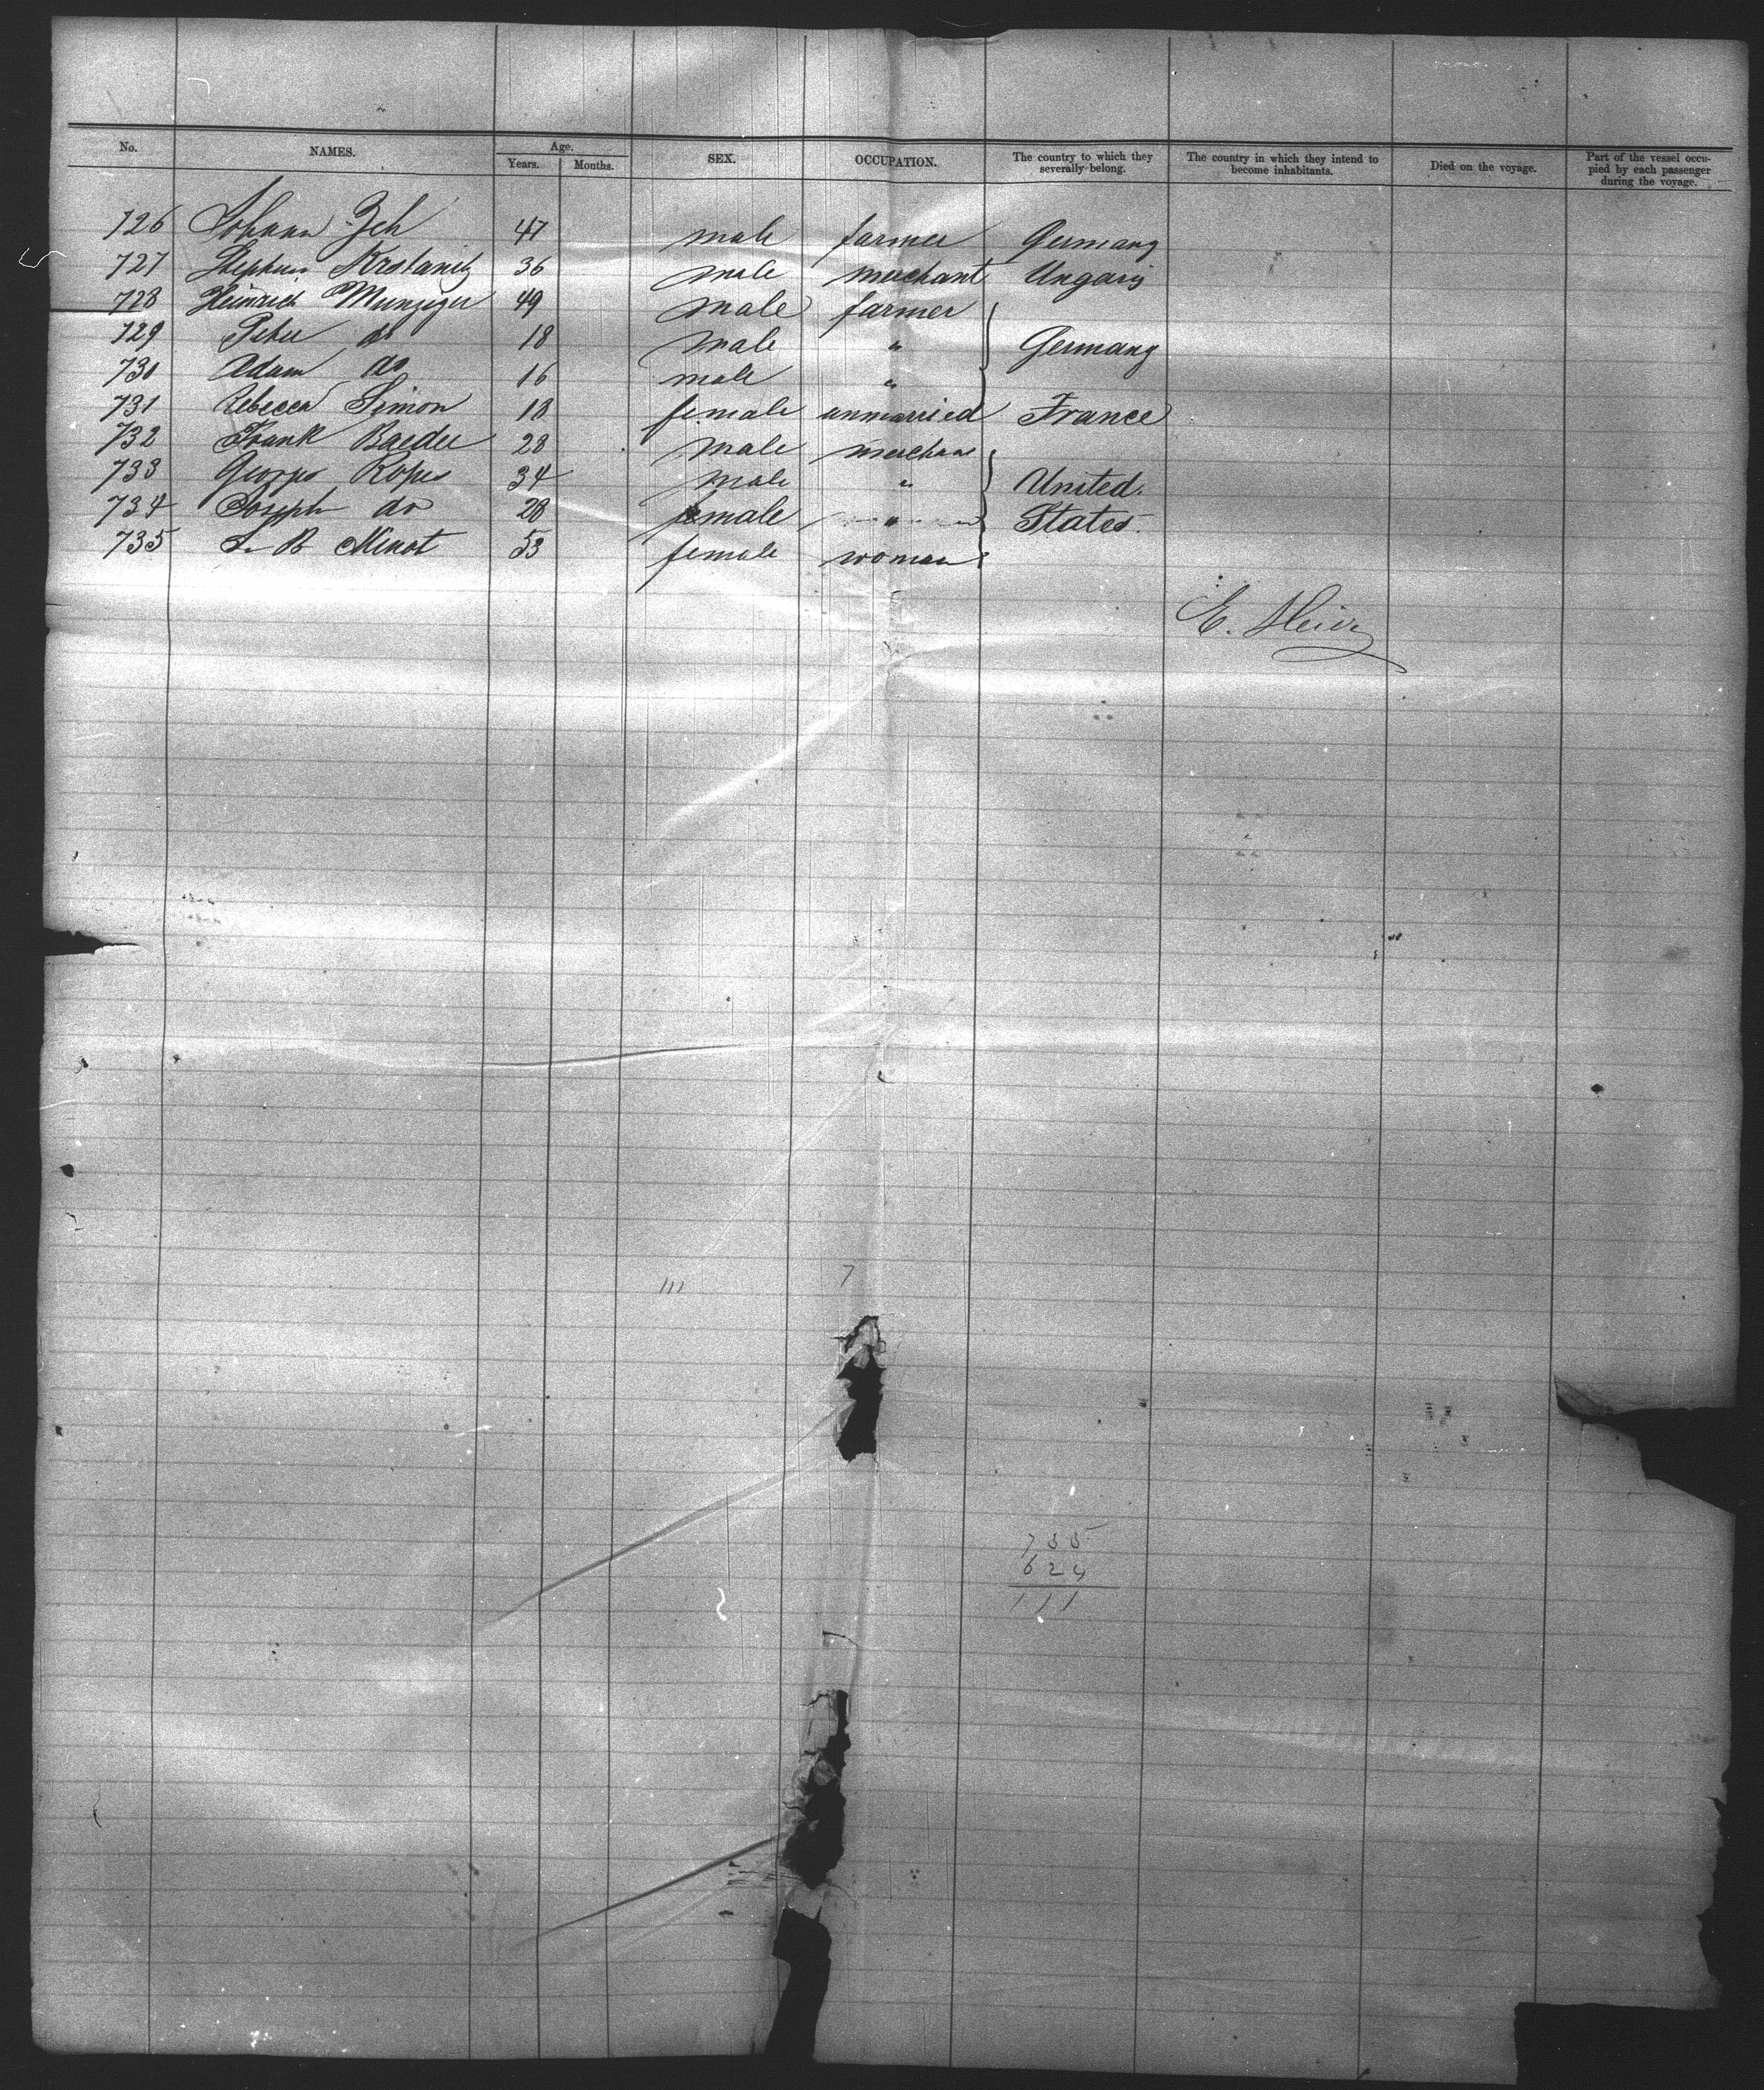 No. NAMES. Age. Years. Months. SEX. OCCUPATION. The country to which they severally belong. The country in which they intend to become inhabitants. Died on the voyage. Part of the vessel occupied by each passenger during the voyage.
726 Johann Zeh 47 male farmer Germany
727 Stephan 36 male merchant Ungary
728 Heinrich Munziger 49 male farmer
729 Peter do 18 male " Germany
730 Adam do 16 male "
731 Rebecca Simon 18 female unmarried France
732 Frank Baeder 28 male merchant
733 George Ropes 34 male " United
734 Joseph do 28 male " States.
735 B Minot 53 female woman
E.
111 7
735
624
111